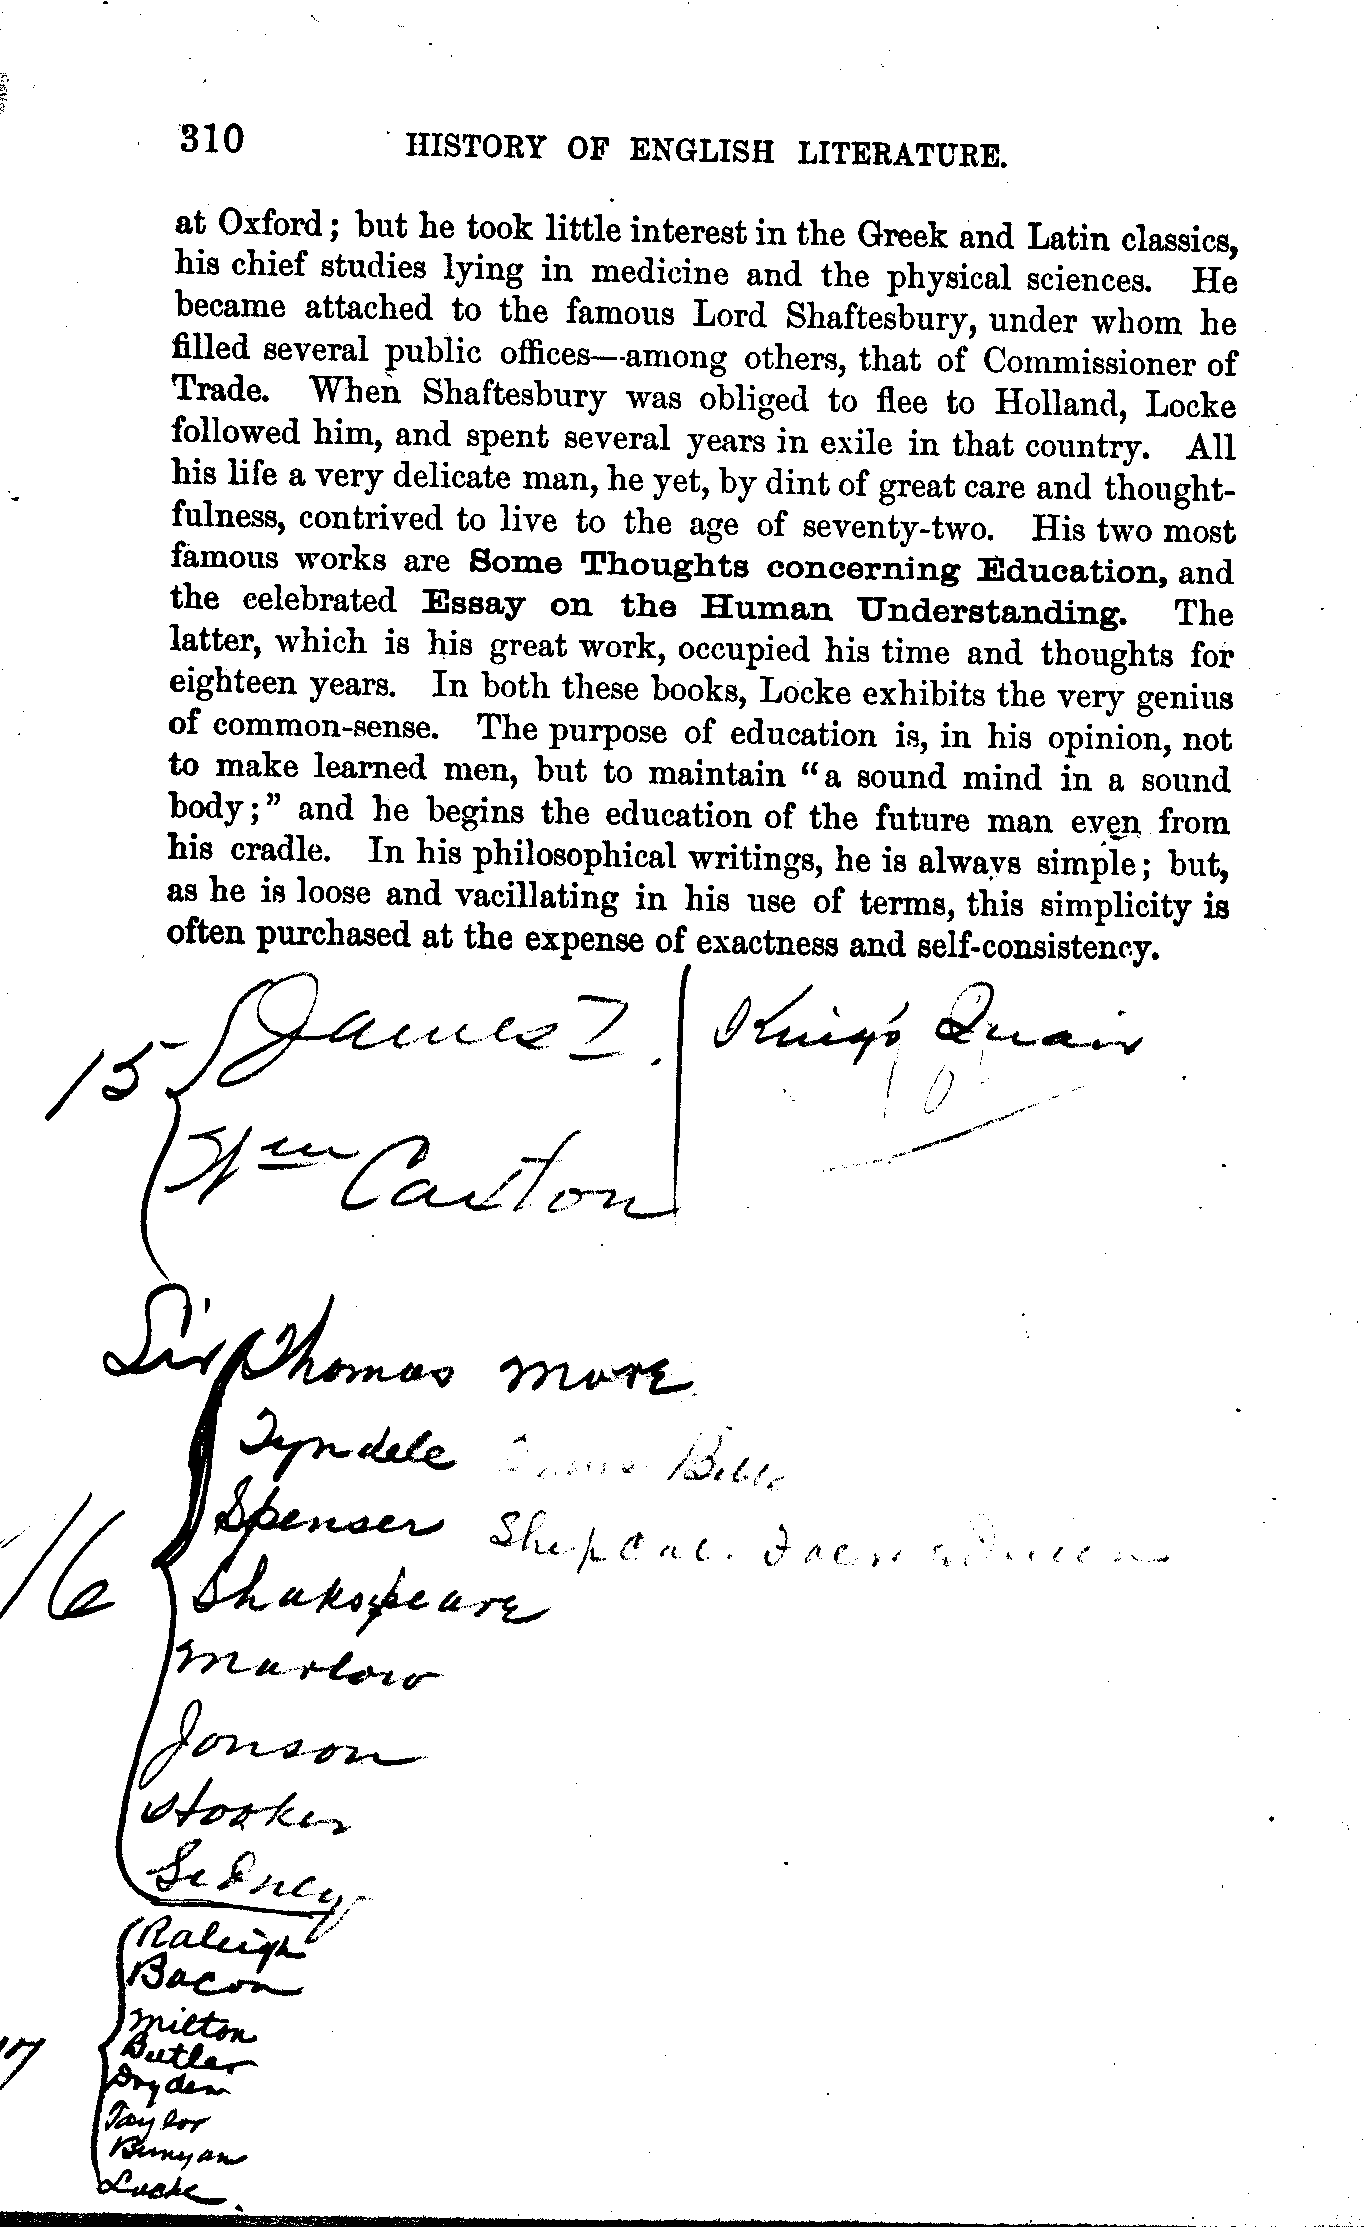 310 HISTORY OF ENGLISH LITERATURE.
at Oxford; but he took little interest in the Greek and Latin classics,
his chief studies lying in medicine and the physical sciences. He
became attached to the famous Lord Shaftesbury, under whom he
filled several public offices—among others, that of Commissioner of
Trade. When Shaftesbury was obliged to flee to Holland, Locke
followed him, and spent several years in exile in that country. All
his life a very delicate man, he yet, by dint of great care and thought-
fulness, contrived to live to the age of seventy-two. His two most
famous works are Some Thoughts concerning Education, and
the celebrated Essay on the Human Understanding. The
latter, which is his great work, occupied his time and thoughts for
eighteen years. In both these books, Locke exhibits the very genius
of common-sense. The purpose of education is, in his opinion, not
to make learned men, but to maintain “a sound mind in a sound
body;” and he begins the education of the future man even from
his cradle. In his philosophical writings, he is always simple; but,
as he is loose and vacillating in his use of terms, this simplicity is
often purchased at the expense of exactness and self-consistency.
James I. King's Quair
15
Wm Caxton
Sir Thomas More
Tyndele Bible
Spenser Shep Cal. Faerie Queen
16
Shakspeare
Marlow
Jonson
Hooker
Sidney
Raleigh
Bacon
Milton
17
Butler
Dryden
Taylor
Bunyan
Locke.